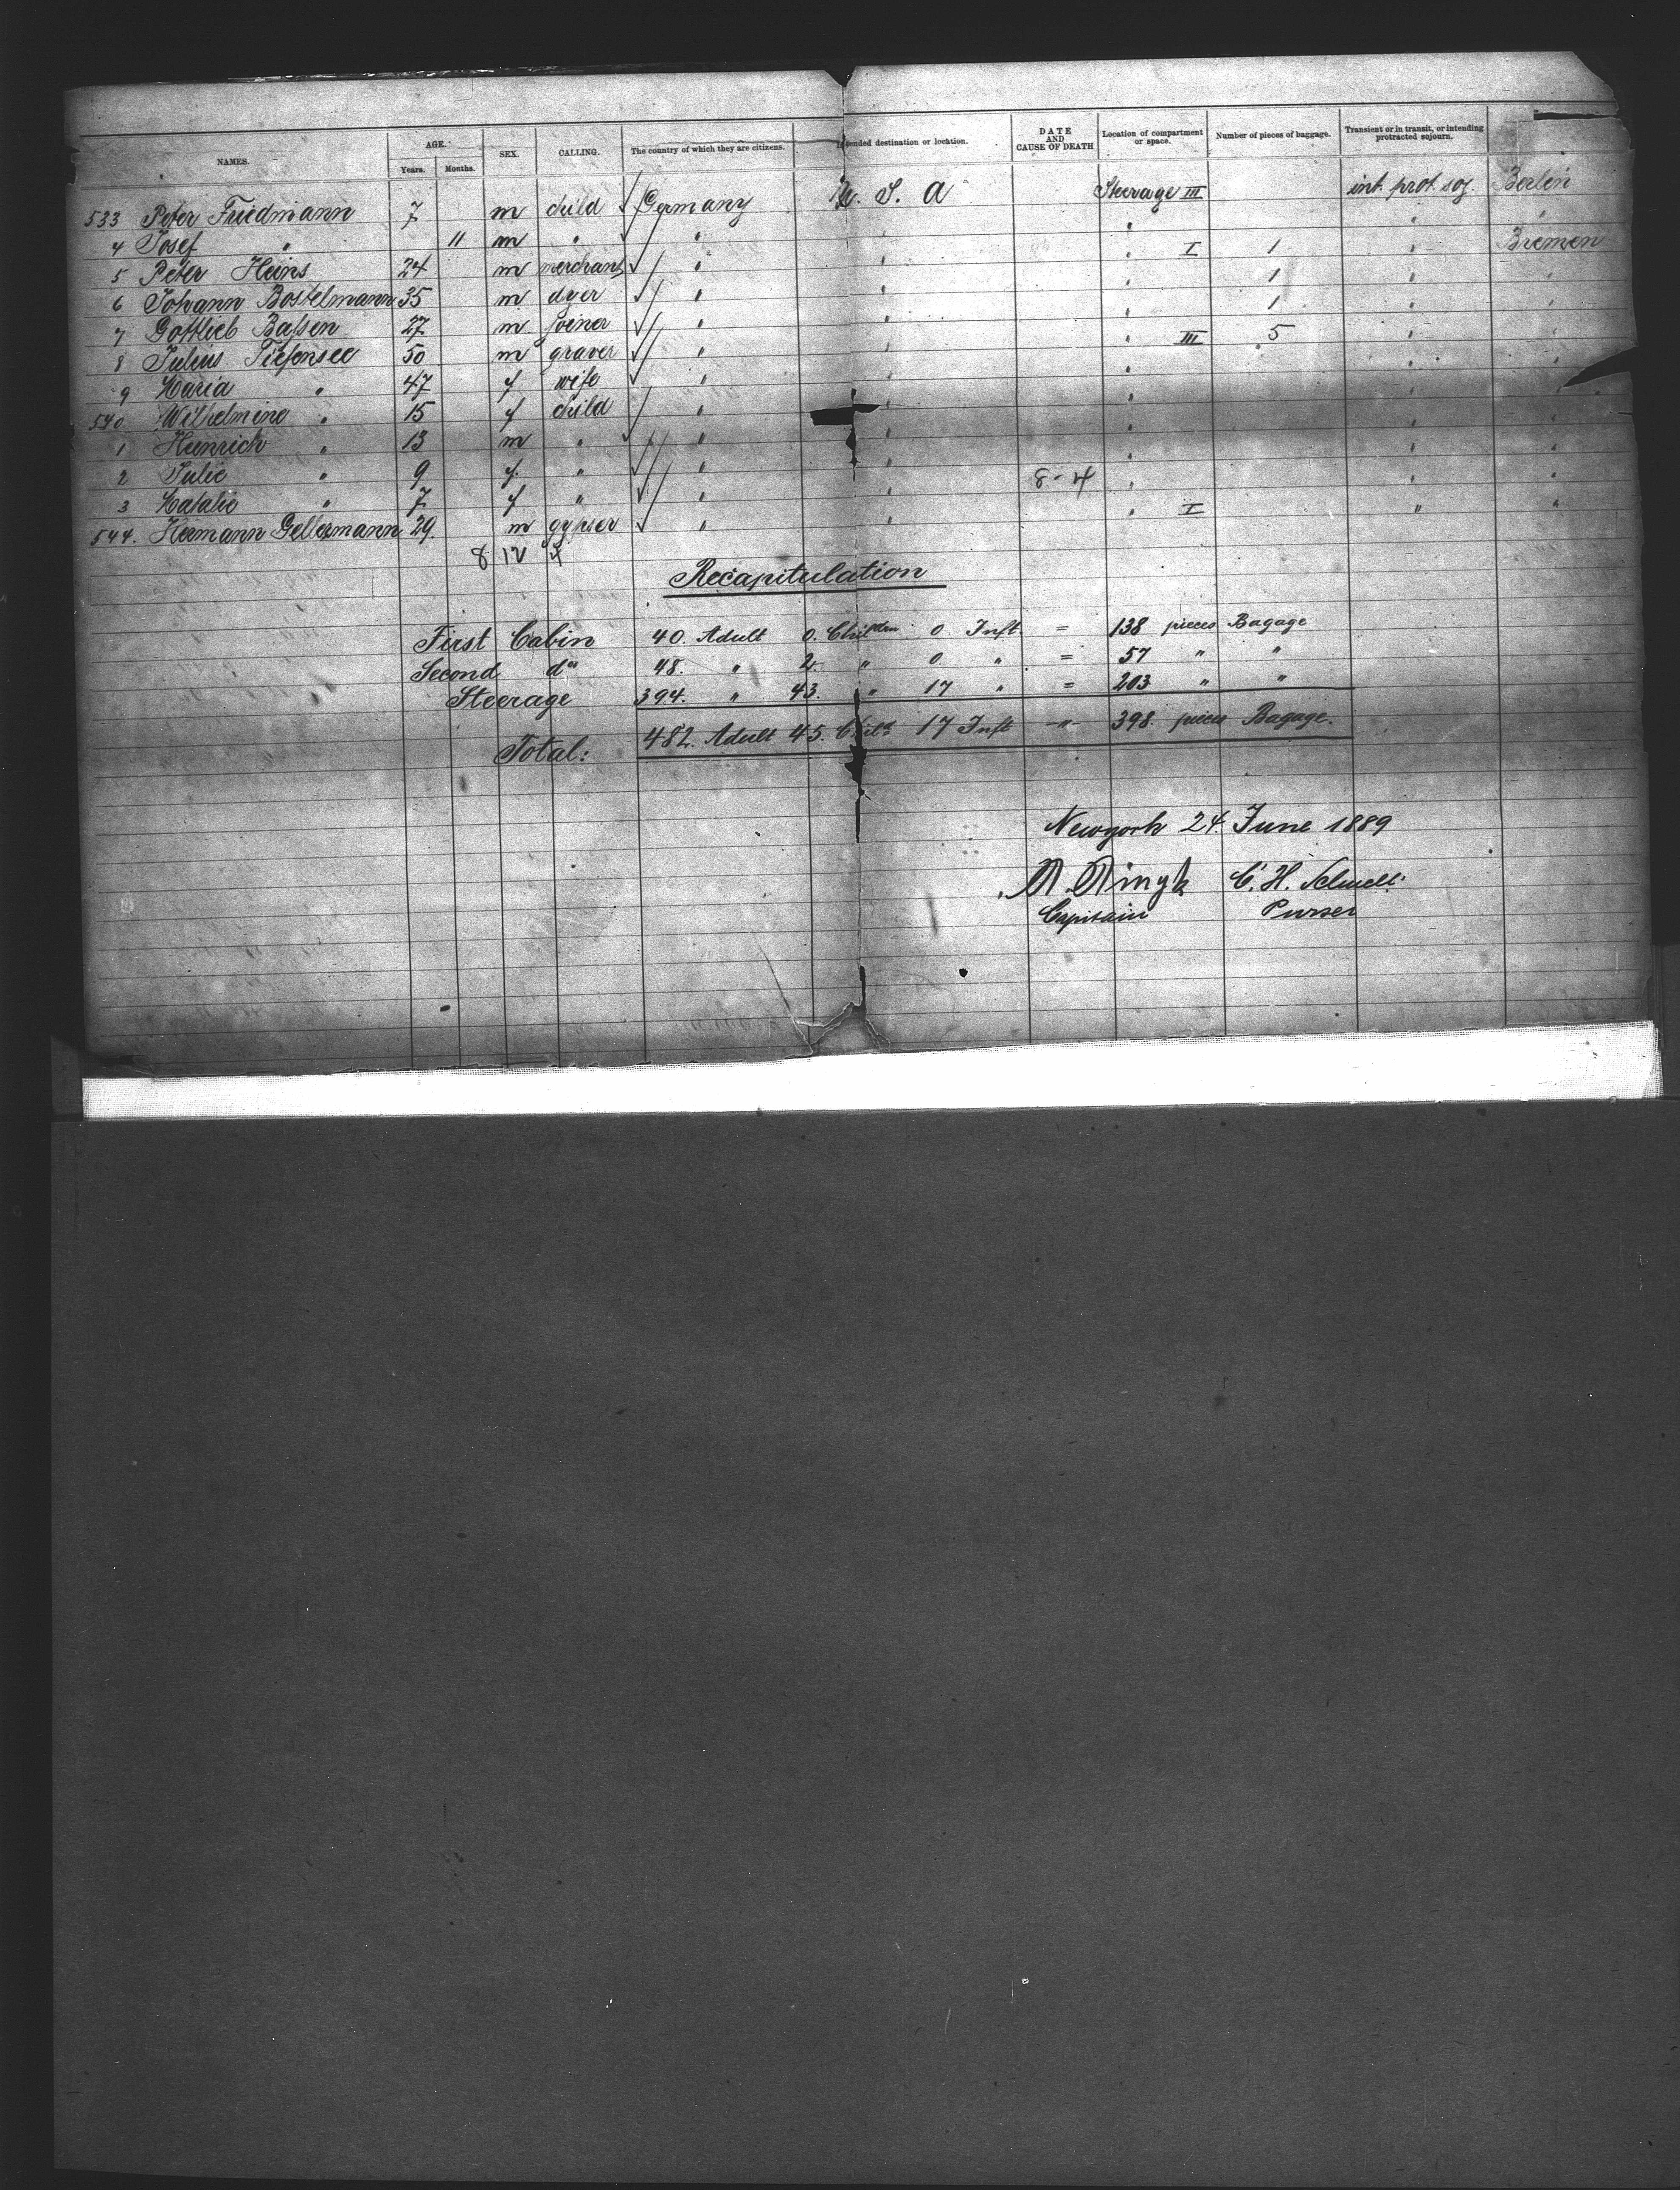 NAMES. AGE. Years. Months. SEX. CALLING. The country of which they are citizens. Intended destination or location. DATE AND CAUSE OF DEATH Location of compartment or space. Number of pieces of baggage. Transient or in transit, or intending protracted sojourn.
533 Peter Friedmann 7 m child Germany U. S. A Steerage III int. prot. soj. Berlin
4 Josef " 11 m " " " " " "
5 Peter Heins 24 m merchant " " " I 1 " Bremen
6 Johann Bostelmann 35 m dyer " " " 1 " "
7 Gottlieb Baßen 27 m joiner " " " 1 " "
8 Julius Tiefensee 50 m graver " " " III 5 " "
9 Maria " 47 f wife " " " " "
540 Wilhelmine " 15 f child " " " " "
1 Heinrich " 13 m " " " " " "
2 Julie " 9 f. " " " " " "
3 Natalie " 7 f " " " 8-4 " " "
544. Hermann Gellermann 29. m gypser " " " I " "
8 12
Recapitulation
First Cabin 40. Adult 0. Children 0 Inft. = 138 pieces Bagage
Second do 48. " 2. " 0 " = 57 " "
Steerage 394. " 43. " 17 " = 203 " "
Total: 482. Adult 45. Child 17 Inft " 398. pieces Bagage.
Newyork 24 June 1889
R. Ringk C. H.
Capitain Purser